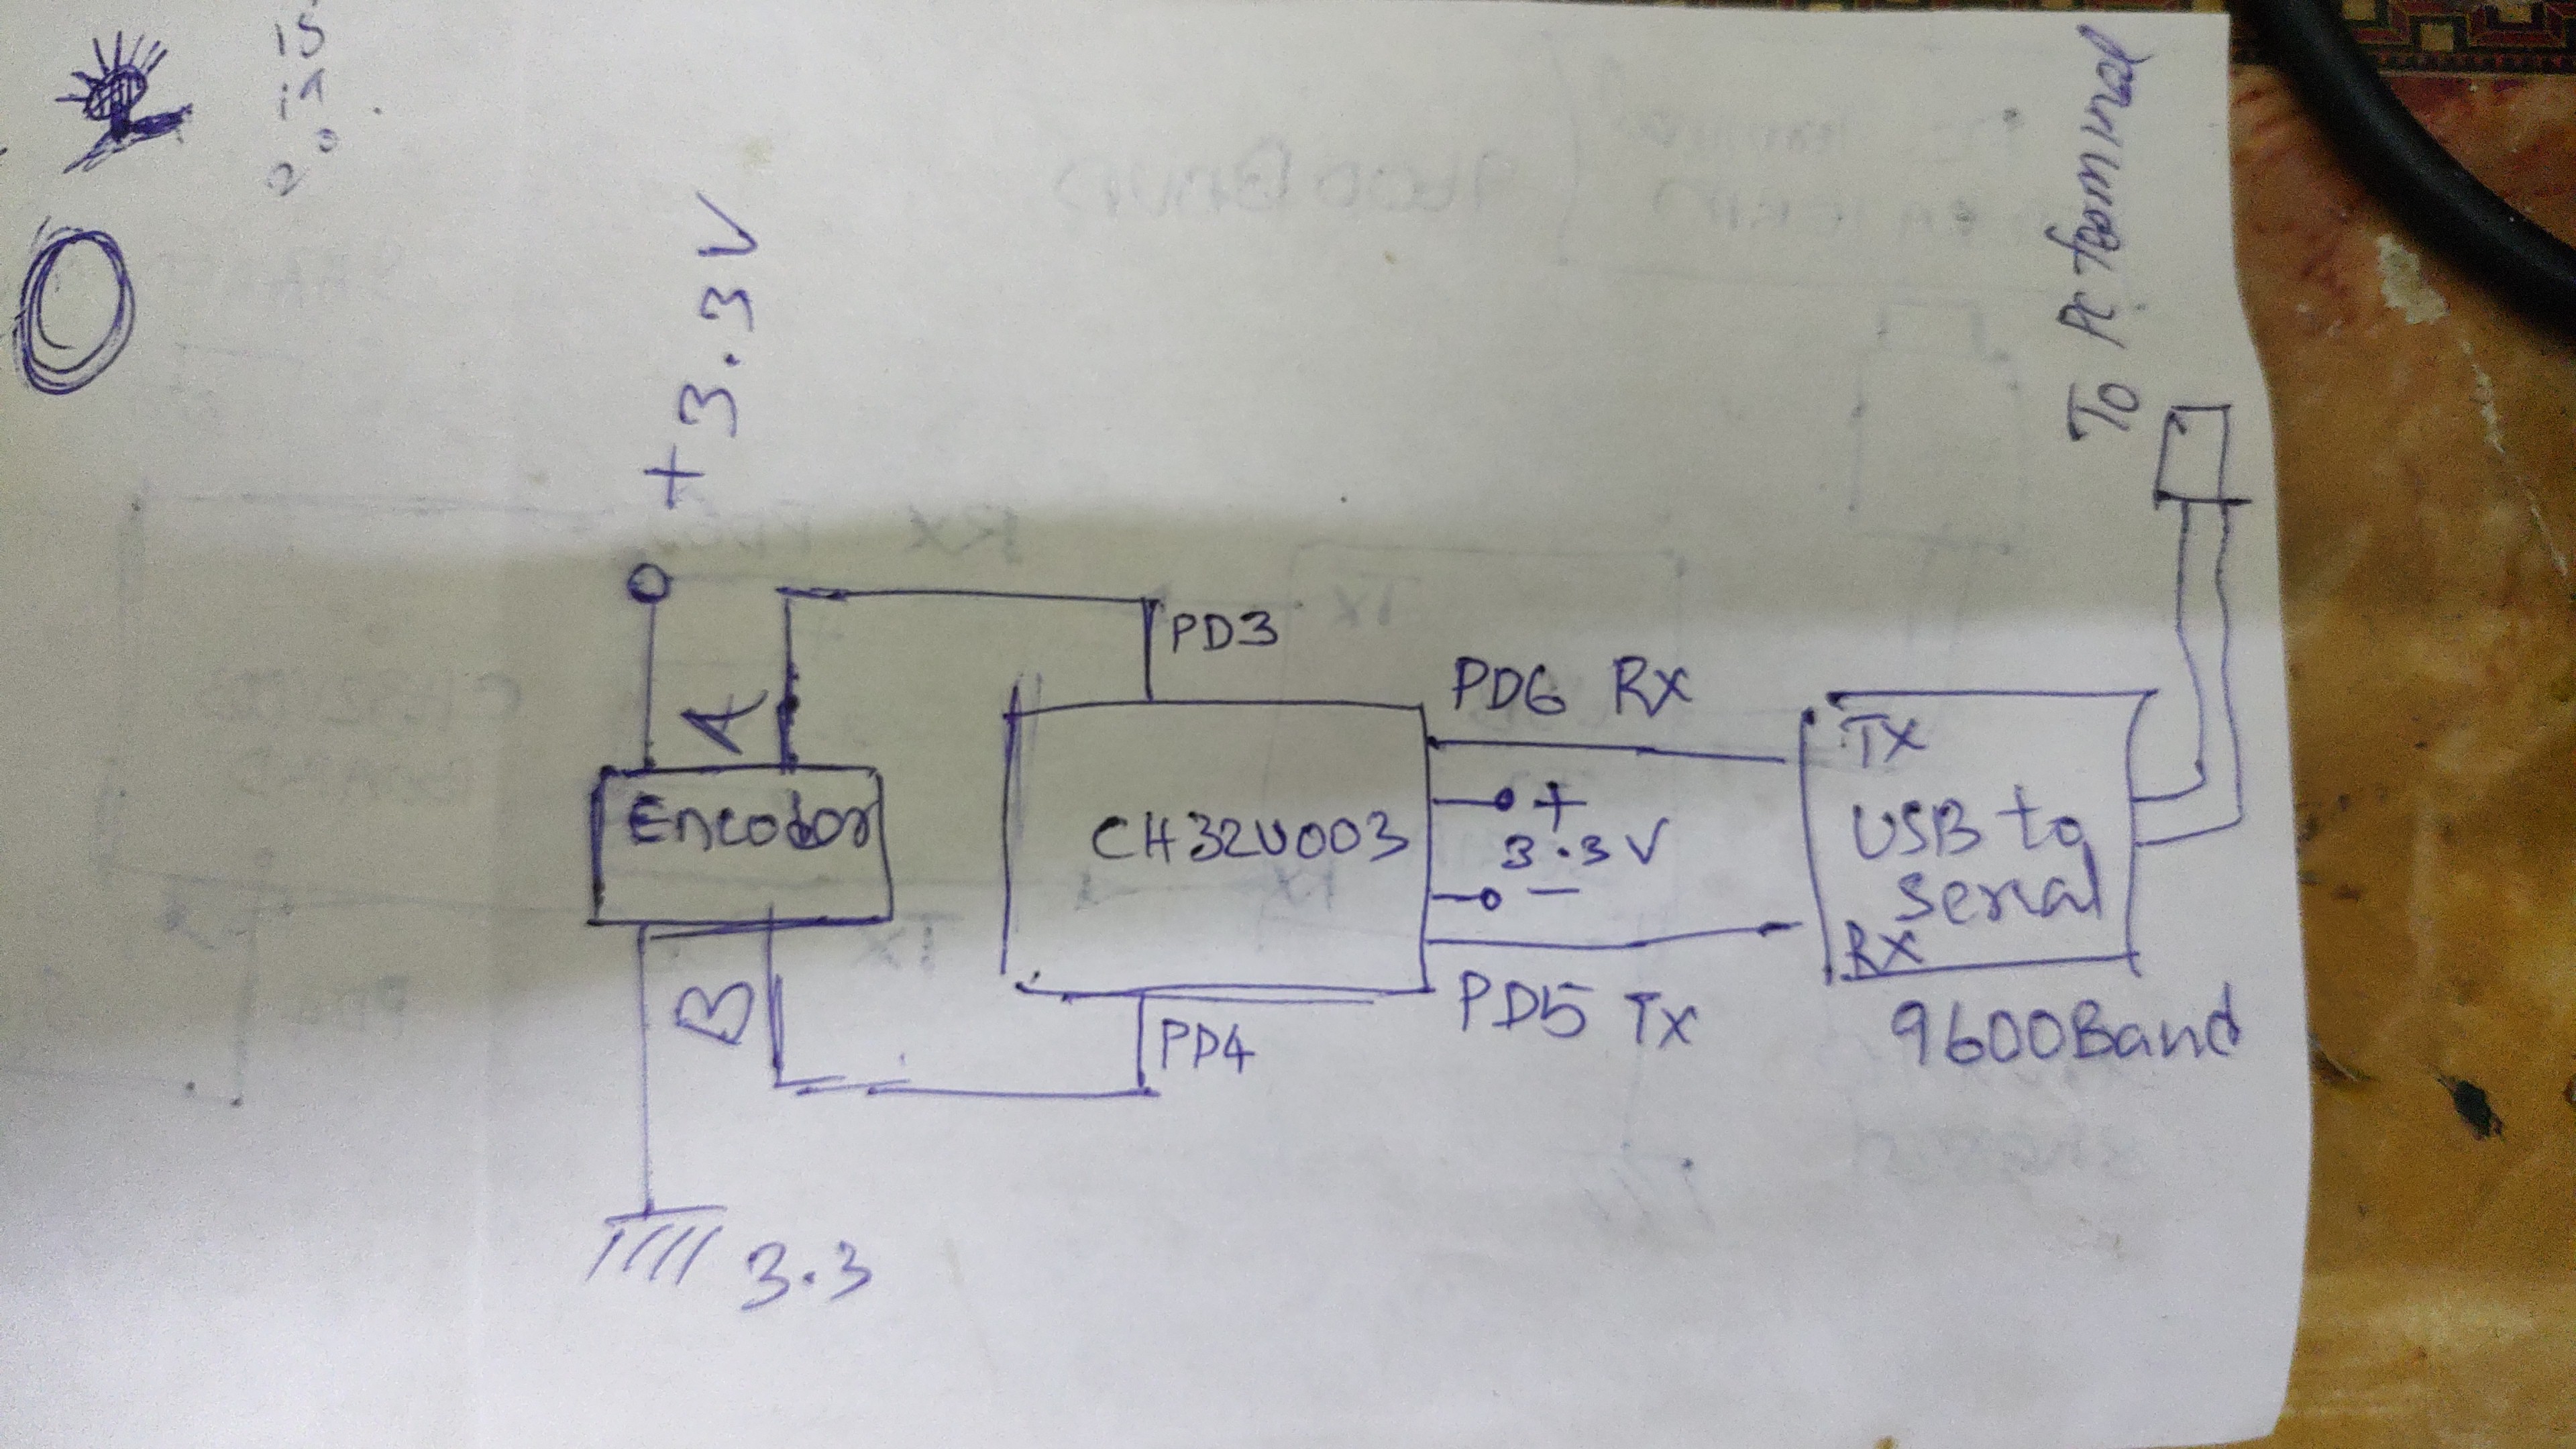 +3.3V
A
Encoder
B
3.3
PD3
CH32V003
PD4
PD6 Rx
+
3.3V
-
PD5 Tx
Tx
USB to
Serial
Rx
9600Baud
To PC terminal